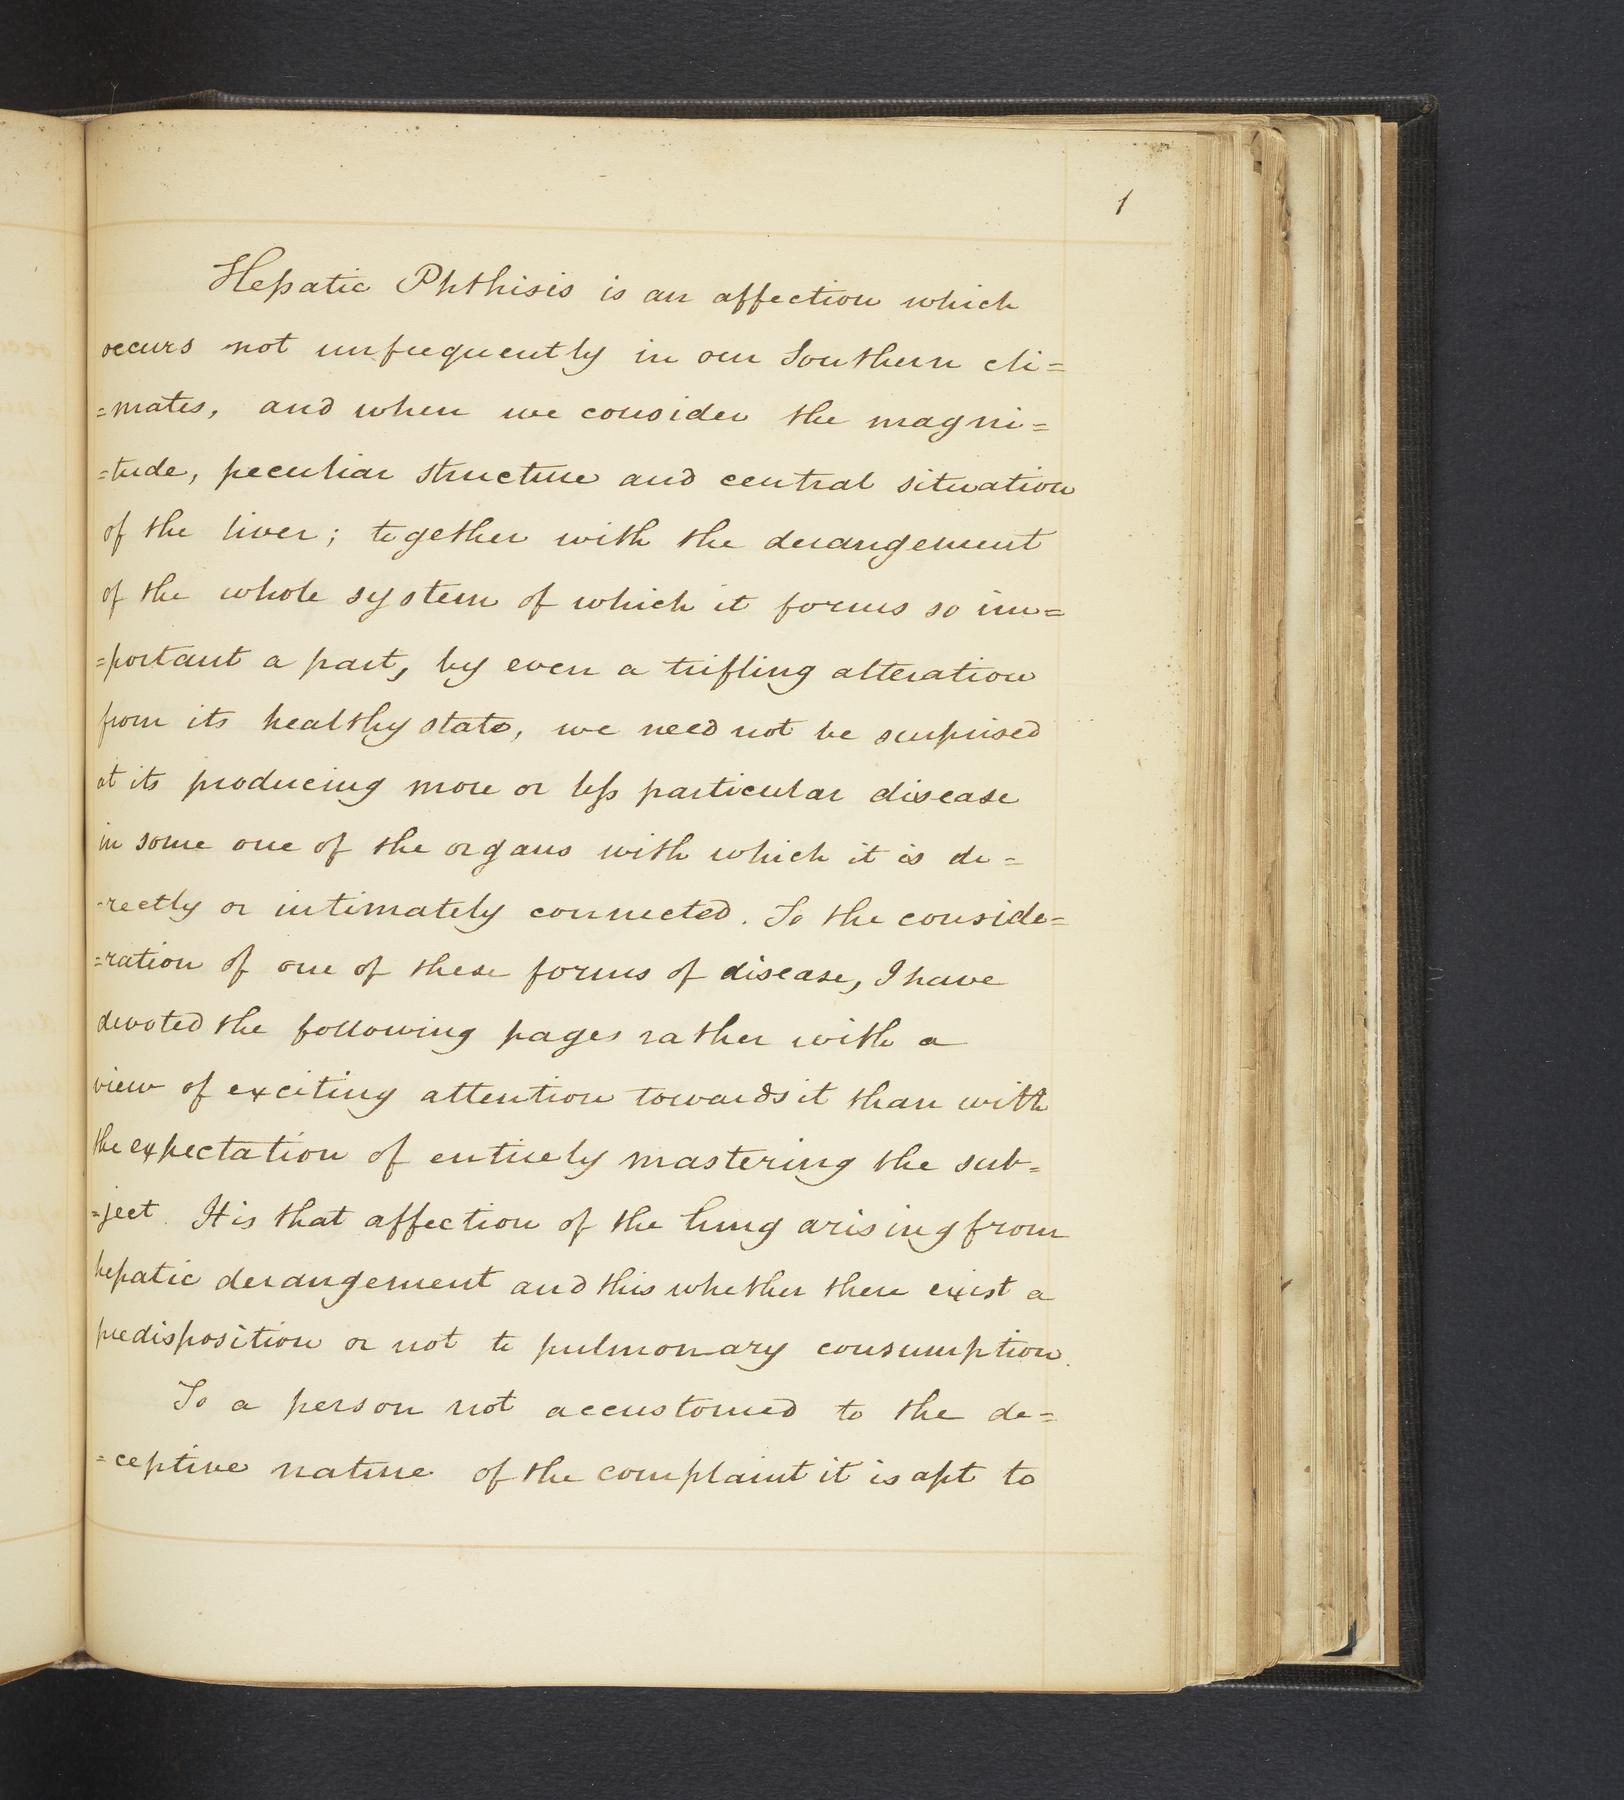 1
Hepatic Phthisis is an affection which
occurs not unfrequently in our Southern cli=
=mates, and when we consider the magni=
=tude, peculiar structure and central situation
of the liver; together with the derangement
of the whole system of which it forms so im=
=portant a part, by even a trifling alteration
from its healthy state, we need not be surprised
at its producing more or less particular disease
in some one of the organs with which it is di=
-rectly or intimately connected. To the conside=
=ration of one of these forms of disease, I have
devoted the following pages rather with a
view of exciting attention towards it than with
the expectation of entirely mastering the sub=
=ject. It is that affection of the lung arising from
hepatic derangement and this whether there exist a
predisposition or not to pulmonary consumption.
To a person not accustomed to the de=
=ceptive nature of the complaint it is apt to